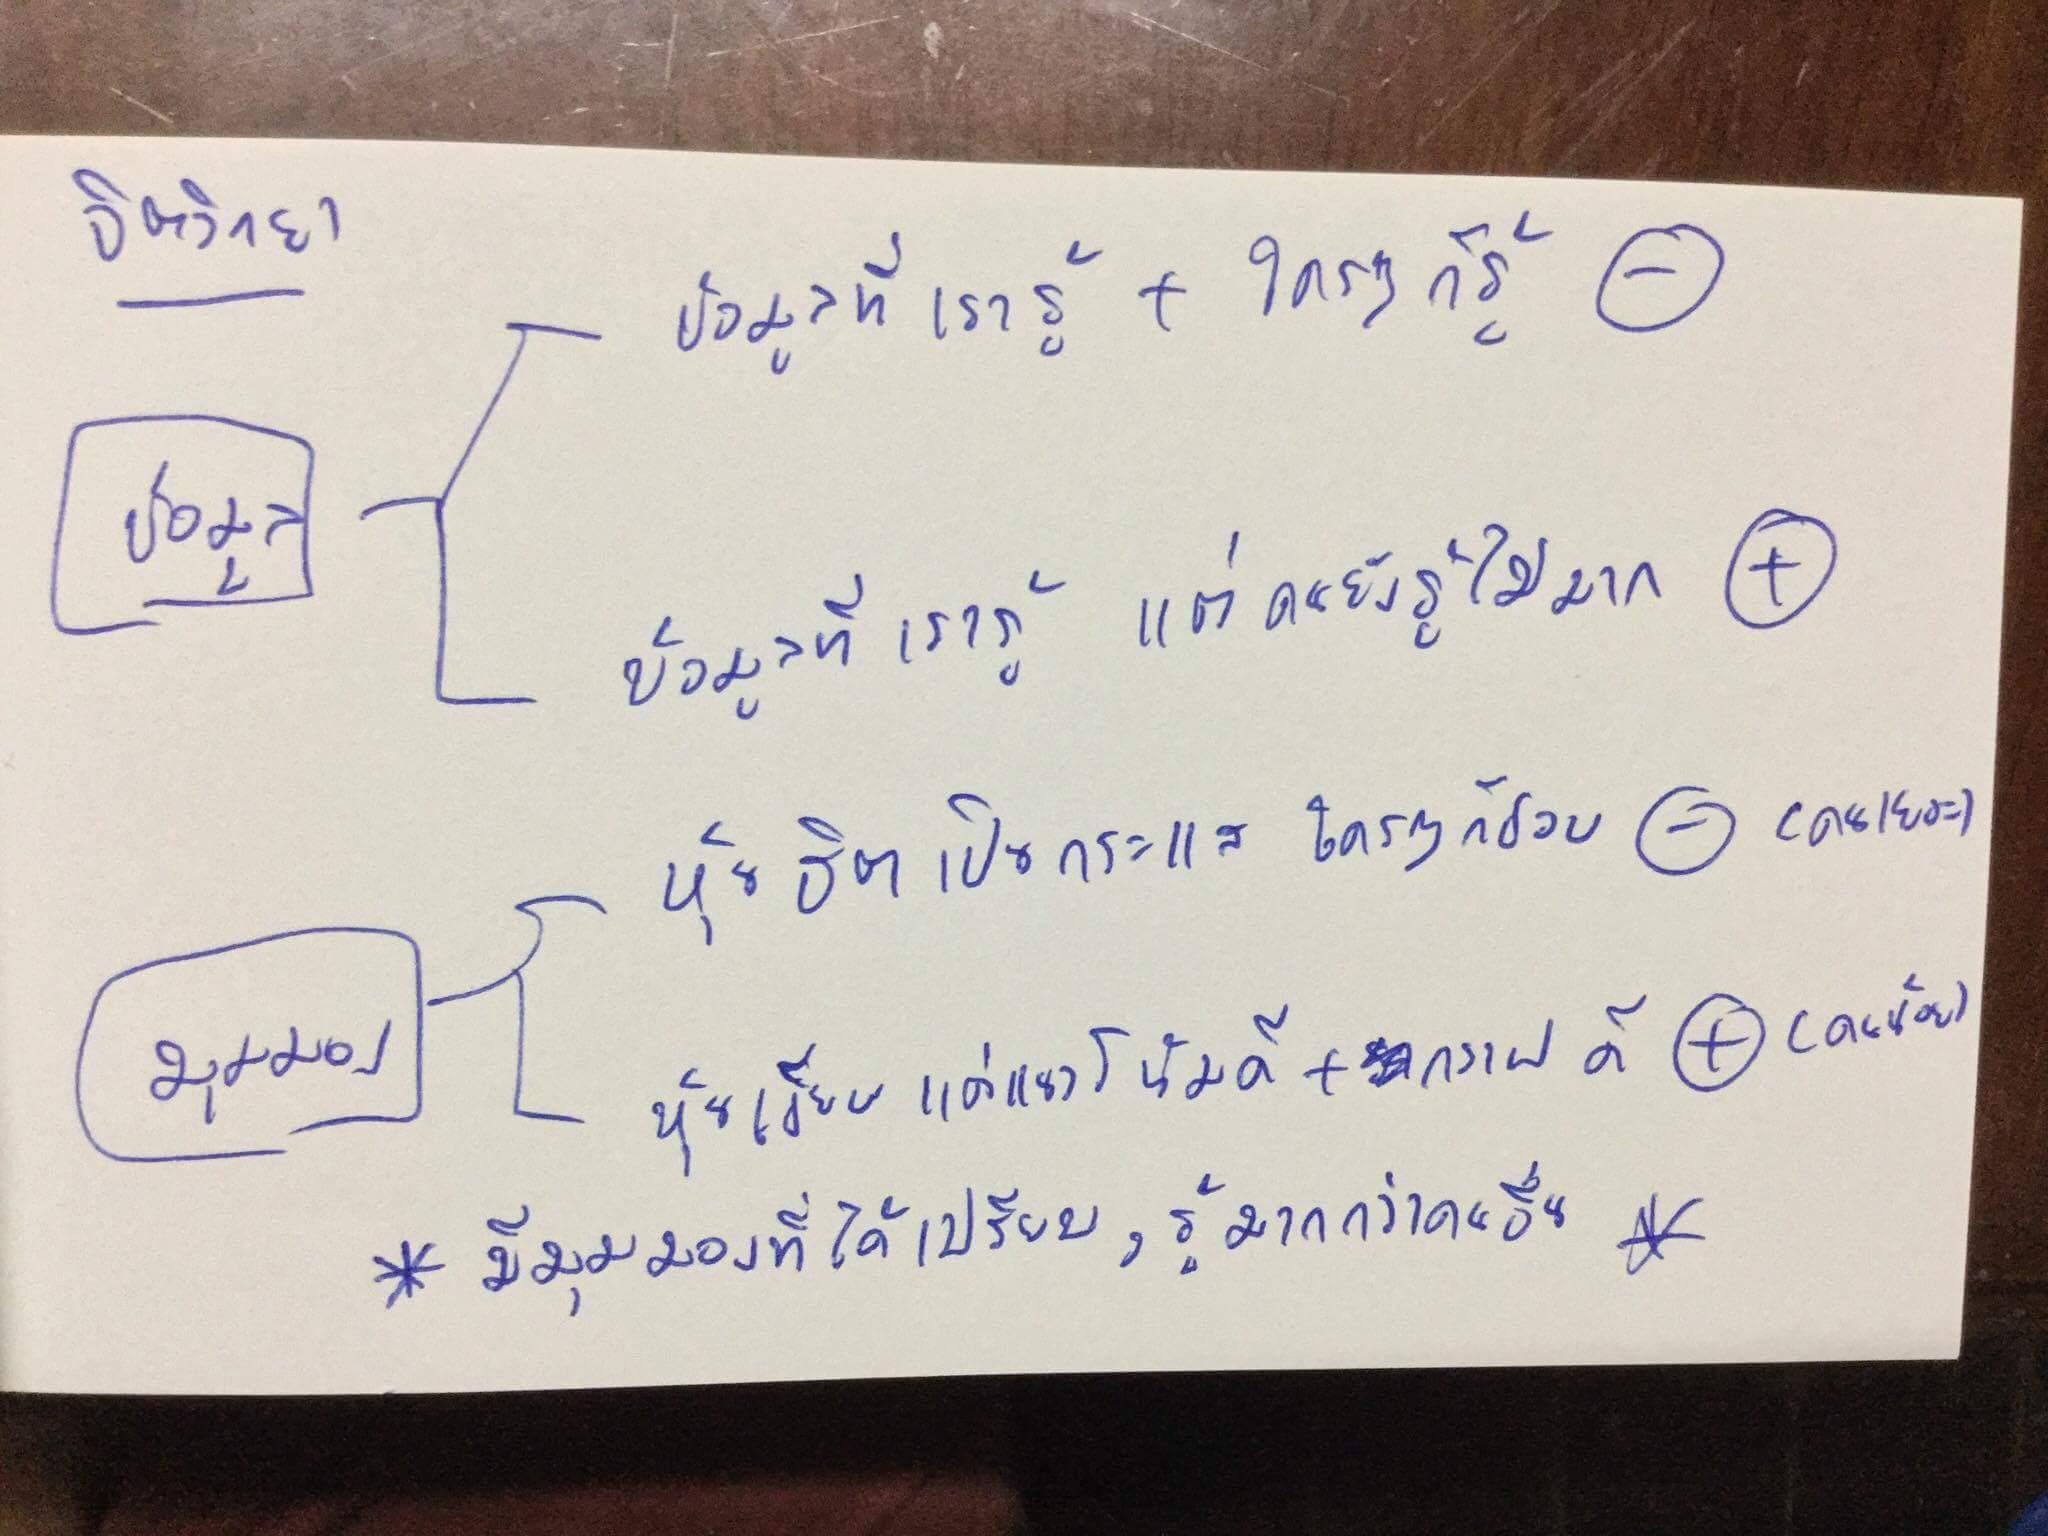 จิตวิทยา
ข้อมูลที่เรารู้ + ใครๆก็รู้ -
ข้อมูล
ข้อมูลที่เรารู้ แต่คนยังรู้ไม่มาก +
หุ้นฮิตเป็นกระแส ใครๆก็ชอบ - (คนเยอะ)
มุมมอง
หุ้นเงียบ แต่แนวโน้มดี + กราฟดี + (คนน้อย)
* มีมุมมองที่ได้เปรียบ, รู้มากกว่าคนอื่น *